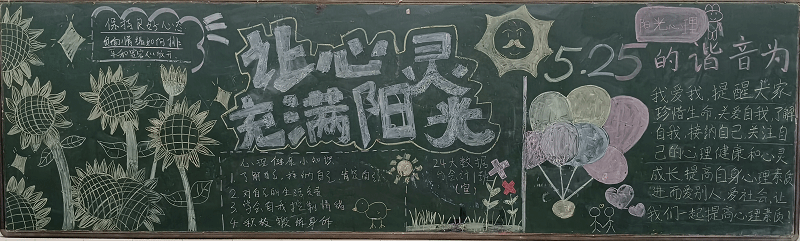 保持良好心态
负面情绪如何排
让心灵
充满阳光
心理健康小知识
1 了解自己,接纳自己
2 对自己的生活负责
3 学会自我控制情绪
4 积极锻炼身体
24大数据
阳光心理
5.25的谐音为
我爱我,提醒大家
珍惜生命、关爱自我,了解
自我、接纳自己,关注自
己的心理健康和心灵
成长,提高自身心理素质
进而爱别人,爱社会,让
我们一起提高心理素质!